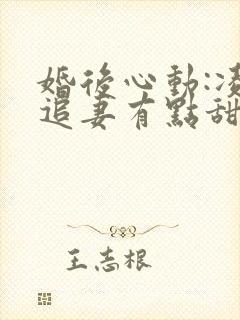 婚後心動:凌
追妻有點甜
王志根